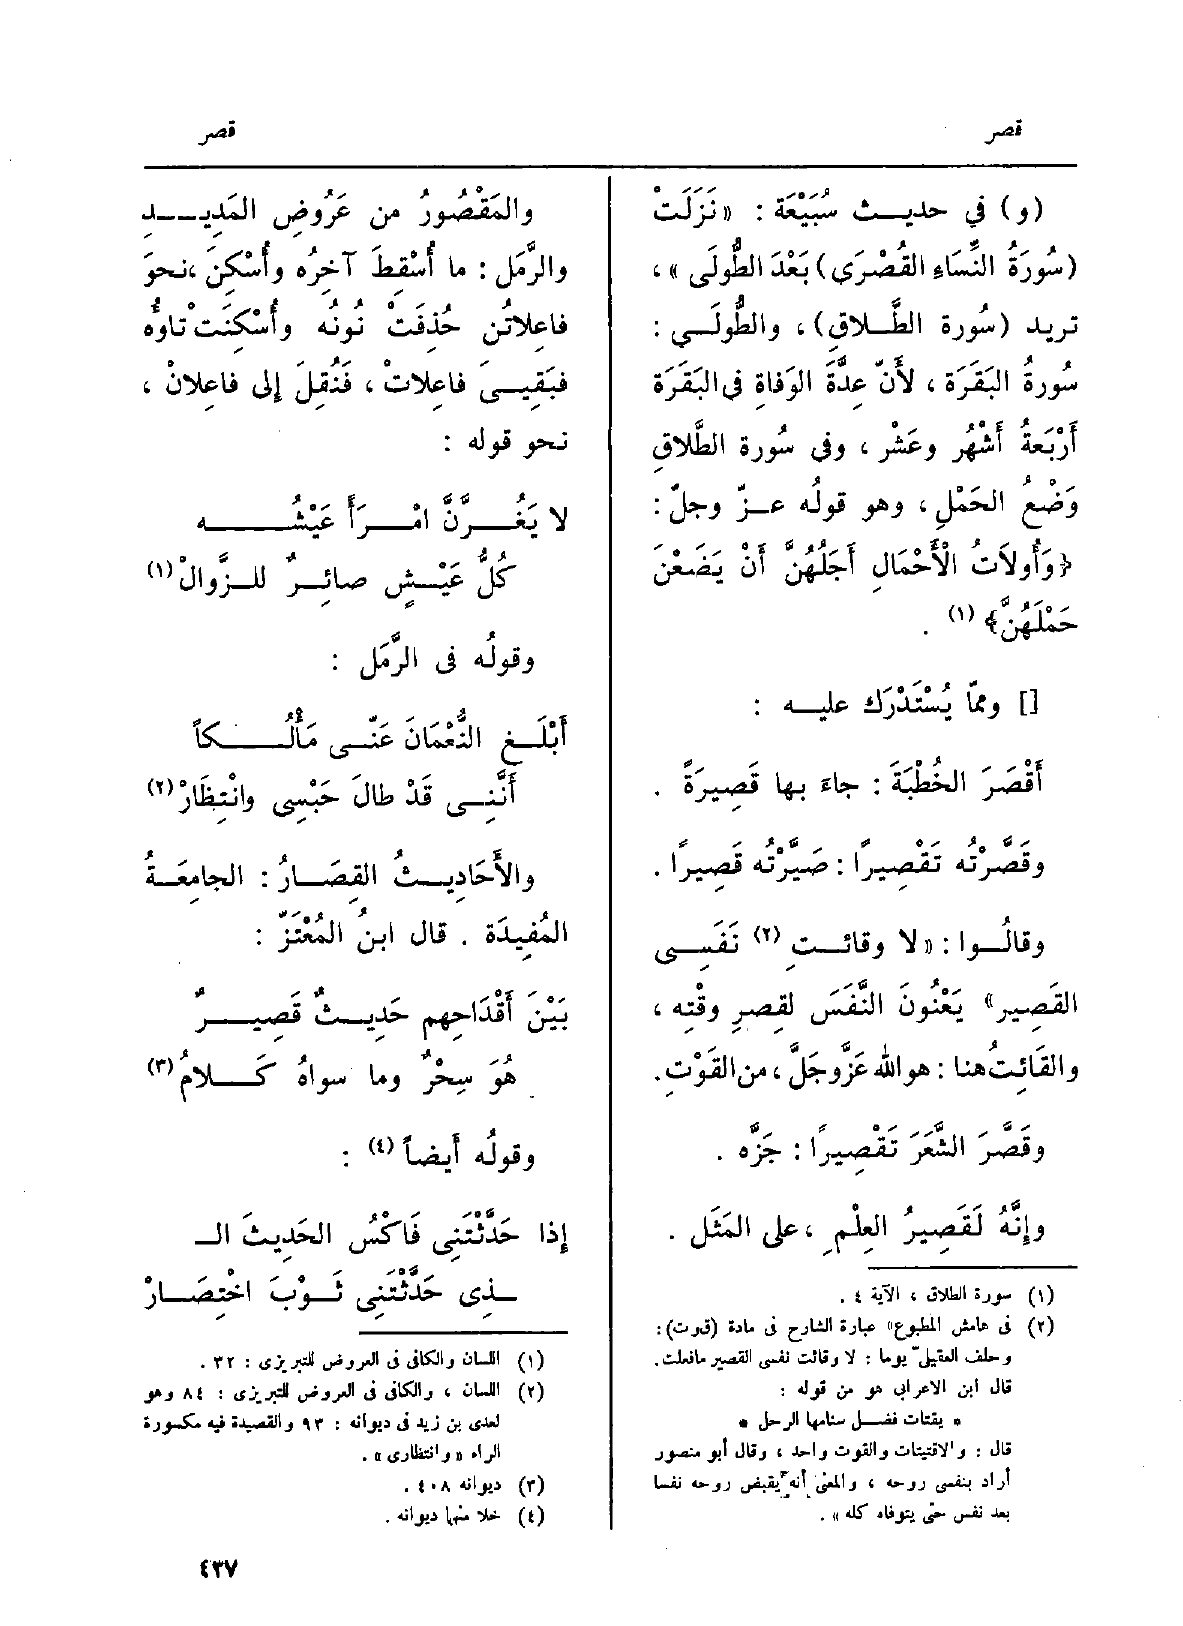 قصر
قصر
(و) في حديث سُبَيْعَة : «نَزَلَتْ
(سُورَةُ النِّسَاءِ القُصْرَى) بَعْدَ الطُّولَى» ،
تريد (سُورة الطَّلاق) ، والطُّولَى :
سُورةُ البَقَرَة ، لأَنّ عِدَّةَ الوَفاةِ فى البَقَرَة
أَرْبَعةُ أَشْهُر وعَشْر ، وفى سُورة الطَّلاقِ
وَضْعُ الحَمْلِ ، وهو قولُه عزّ وجلّ :
﴿وَأُولاَتُ الْأَحْمَالِ أَجَلُهُنَّ أَنْ يَضَعْنَ
حَمْلَهُنَّ﴾ (١) .
[] وممّا يُسْتَدْرَك عليه :
أَقْصَرَ الخُطْبَةَ : جاءَ بها قَصِيرَةً .
وقَصَّرْتُه تَقْصِيرًا : صَيَّرْتُه قَصِيرًا .
وقالُوا : «لا وقائت (٢) نَفَسِى
القَصِير» يَعْنُونَ النَّفَسَ لقِصرِ وقْتِه ،
والقَائِتُ هنا : هو الله عَزَّ وجَلَّ ، من القَوْتِ .
وقَصَّرَ الشَّعَرَ تَقْصِيرًا : جَزَّه .
وإِنَّهُ لَقَصِيرُ العِلْمِ ، على المَثَل .
(١) سورة الطلاق ، الآية ٤ .
(٢) فى هامش المطبوع» عبارة الشارح فى مادة (قوت) :
وحلف العقيلى يوما : لا وقائت نفسى القصير مافعلت .
قال ابن الاعرابى هو من قوله :
* يقتات فضل سنامها الرحل *
قال : والاقتيات والقوت واحد ، وقال أبو منصور
أراد بنفسى روحه ، والمعنى أنه يقبض روحه نفسا
بعد نفس حتى يتوفاه كله » .
والمَقْصُورُ من عَرُوضِ المَدِيد
والرَّمَلِ : ما أُسْقِطَ آخِرُه وأُسْكِنَ ، نحوَ
فاعِلاتُن حُذِفَتْ نُونُه وأُسْكِنَت تاؤُه
فبَقِىَ فاعِلاتْ ، فنُقِلَ إلى فاعِلانْ ،
نحو قوله :
لا يَغُرَّنَّ امْرَأً عَيْشُه
كُلُّ عَيْشٍ صائِرٌ للزَّوالْ (١)
وقولُه فى الرَّمَل :
أَبْلِغِ النُّعْمَانَ عَنِّى مَأْلُكاً
أَنَّنِى قَدْ طالَ حَبْسِى وانْتِظَارْ (٢)
والأَحَادِيثُ القِصَارُ : الجامِعَةُ
المُفِيدَة . قال ابنُ المُعْتَزّ :
بَيْنَ أَقْدَاحِهِم حَدِيثٌ قَصِيرٌ
هُوَ سِحْرٌ وما سواهُ كَلامُ (٣)
وقولُه أَيضاً (٤) :
إِذا حَدَّثْتَنِى فَاكْسُ الحَدِيثَ الـ
ـذِى حَدَّثْتَنِى ثَوْبَ اخْتِصَارْ
(١) اللسان والكافى فى العروض للتبريزى : ٣٢ .
(٢) اللسان ، والكافى فى العروض للتبريزى : ٨٤ وهو
لعدى بن زيد فى ديوانه : ٩٣ والقصيدة فيه مكسورة
الراء «وانتظارى» .
(٣) ديوانه ٤٠٨ .
(٤) خلا منها ديوانه .
٤٣٧